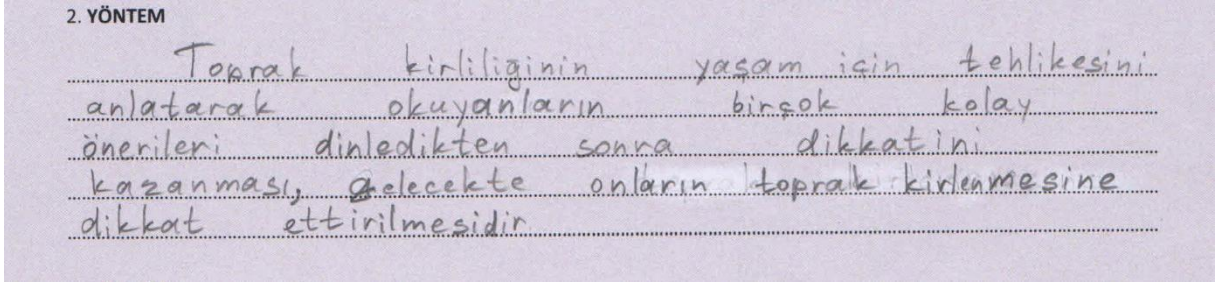 2. YÖNTEM
Toprak kirliliğinin yaşam için tehlikesini
anlatarak okuyanların birçok kolay
önerileri dinledikten sonra dikkatini
kazanması, gelecekte onların toprak kirlenmesine
dikkat ettirilmesidir